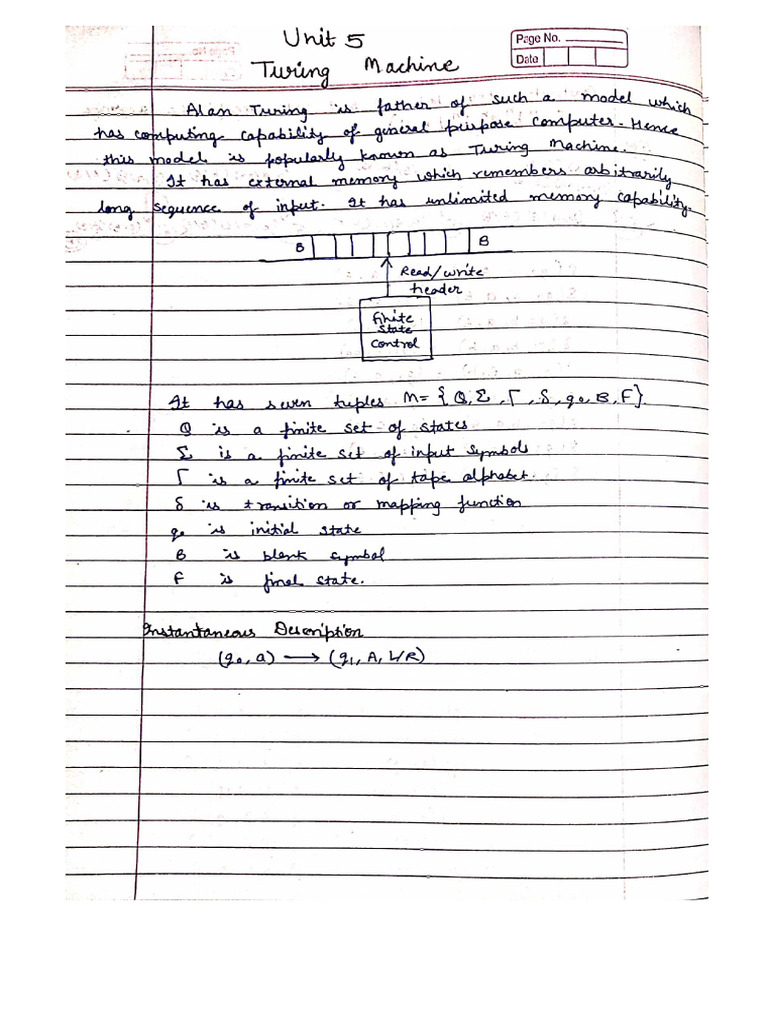 Unit 5
Page No.
Date
Turing Machine
Alan Turing is father of such a model which
has computing capability of general purpose computer. Hence
this model is popularly known as Turing Machine.
It has external memory which remembers arbitrarily
long sequence of input. It has unlimited memory capability.
B B
Read/write
header
Finite
State
Control
It has seven tuples M= {Q, Σ, Γ, δ, q₀, B, F}.
Q is a finite set of states
Σ is a finite set of input symbols
Γ is a finite set of tape alphabet.
δ is transition or mapping function
q₀ is initial state
B is blank symbol
F is final state.
Instantaneous Description
(q₀, a) ⟶ (q₁, A, L/R)